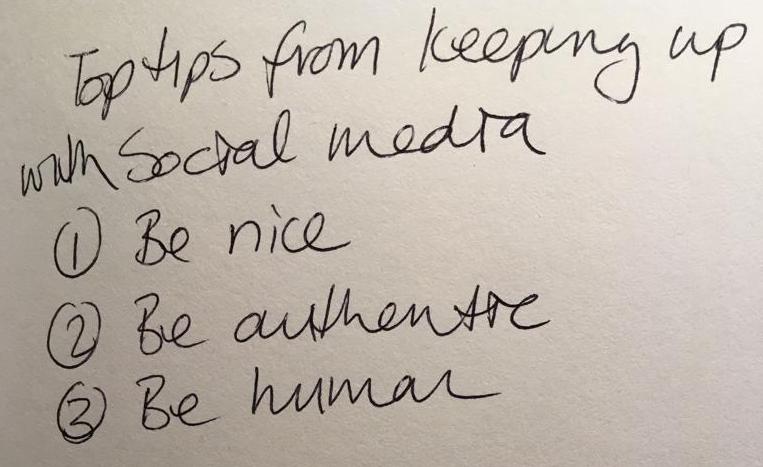 Top tips from keeping up
with Social media
① Be nice
② Be authentic
③ Be human